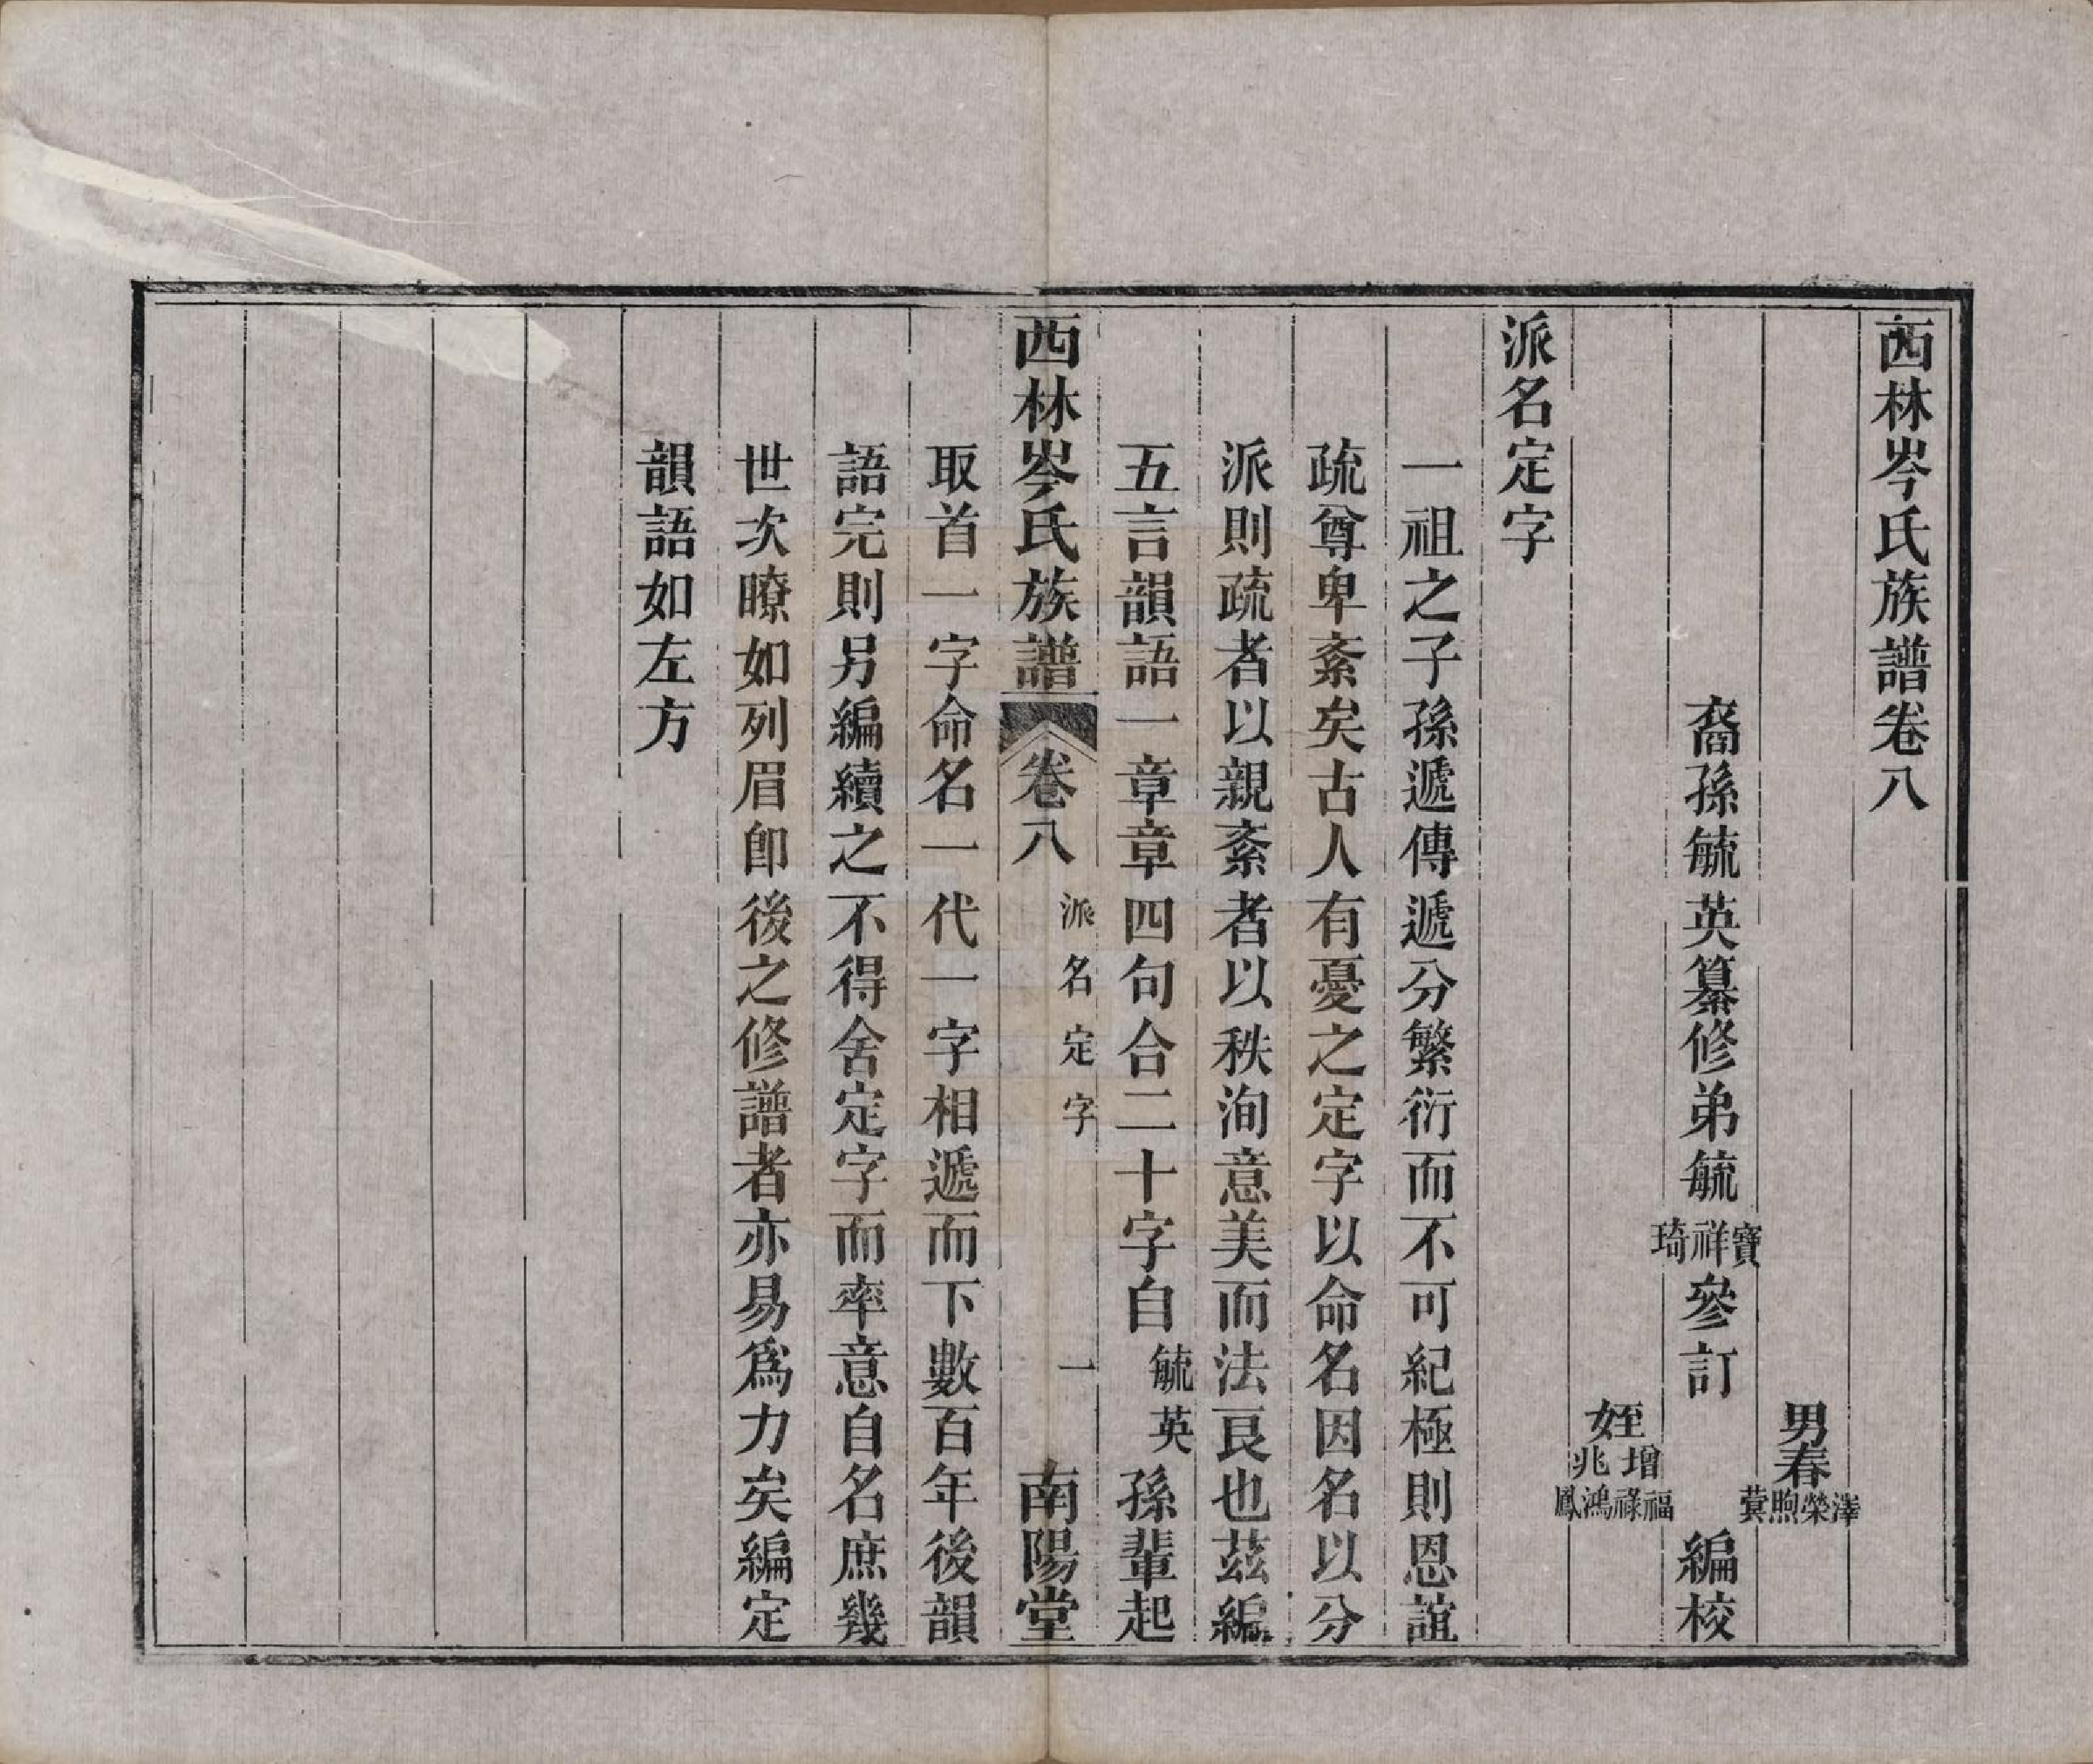 西林岑氏族譜卷八
男春澤榮煦蓂
裔孫毓英纂修弟毓寶祥琦參訂
編校
姪增兆福祿鴻鳳
派名定字
一祖之子孫遞傳遞分繁衍而不可紀極則恩誼
疏尊卑紊矣古人有憂之定字以命名因名以分
派則疏者以親紊者以秩洵意美而法良也茲編
五言韻語一章章四句合二十字自毓英孫輩起
西林岑氏族譜 卷八 派名定字 一 南陽堂
取首一字命名一代一字相遞而下數百年後韻
語完則另編續之不得舍定字而率意自名庶幾
世次瞭如列眉卽後之修譜者亦易爲力矣編定
韻語如左方